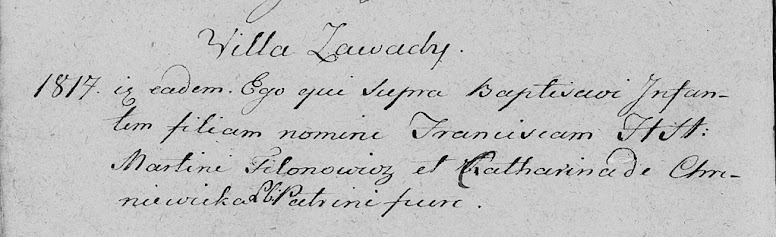 Villa Zawady.
1817. iz eadem. Ego qui supra Baptisavi Infan-
tem filiam nomine Franciscam H St:
Martini Filonowicz et Catharina de Chm-
niewicka LC Patrini fuere.